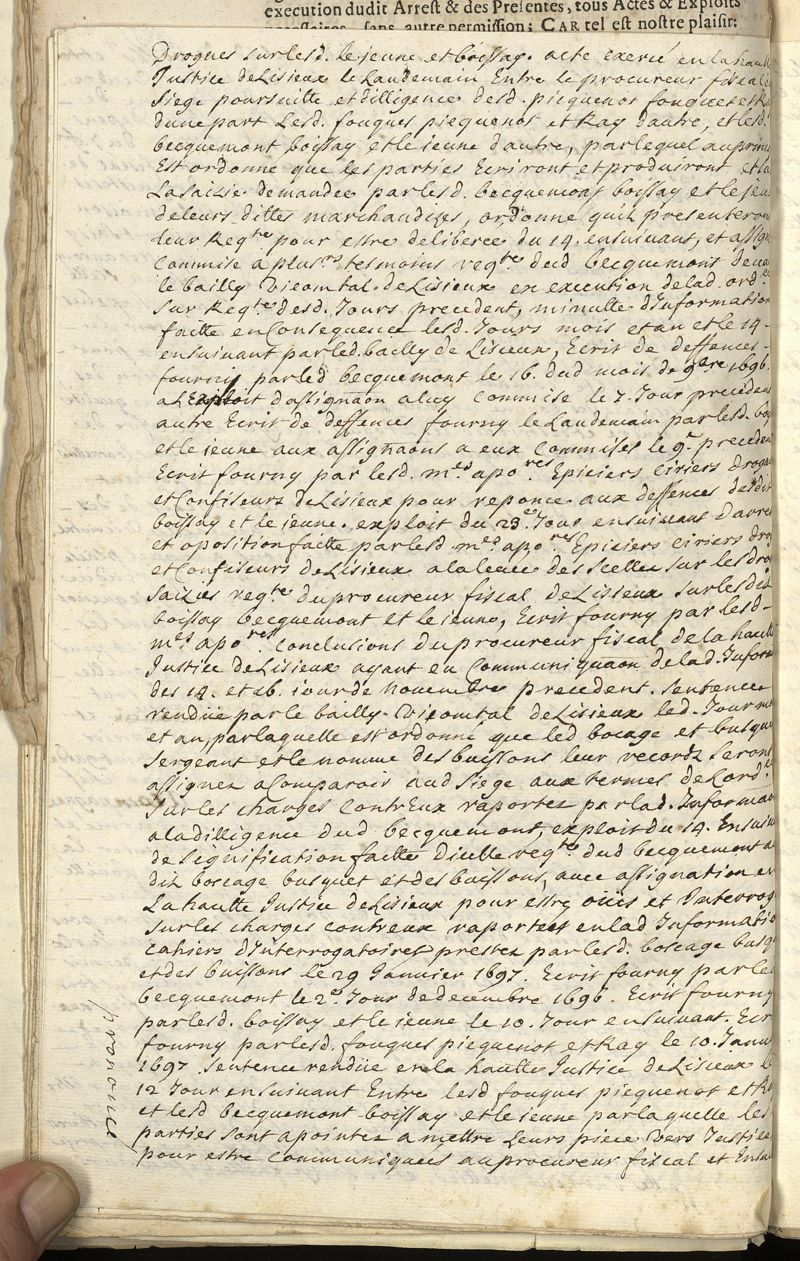 execution dudit Arrest & des Presentes, tous Actes & Exploits
necessaires, sans autre permission; CAR tel est nostre plaisir:
Drogues sur lesd. le jeune et boissay. acte exercé en la haulte
Justice de Lisieux le Landemain Entre le procureur fiscal
siege poursuitte et dilligence desd. piequenot fouques et Ra
dune part Lesd. fouques piequenot et Ray dautre, et lesd.
becquemont boissay et le jeune d'autre, par lequel au prin
Est ordonne que les parties Ecriront et produiront et sa
La saizie demandee par lesd. becquemont boissay et le jeu
de leurs dittes marchandizes, ordonne quilz presenteron
leur Reqte. pour estre deliberee du 14. ensuivant, et assign
Commise a plusrs. tesmoins reqte. dud becquemont deva
le bailly Vicomtal de Lisieux en execution de lad. ordce.
sur Reqte. desd. Jours precedent, minutte d'Information
faitte en Consequence lesd. Jours mois et an et le 14 -
ensuivant par led. bailly de Lisieux, Ecrit de deffences -
fourny par led becquemont le 16. dud mois de 9bre 1696.
a L'Exploit d'assignaon a luy commise le 7. Jour precedent
autre Ecrit de deffences fourny le Landemain par lesd. boi
et le jeune aux assignaons a eux Commises le 9e. preceden
Ecrit fourny par lesd. mes apores Epiciers ciriers drogu
et Confiseurs de Lisieux pour reponce aux deffences desdit
boissay et le jeune. exploit du 23e. Jour ensuivant d'arres
et oposition faitte par lesd mes. apores Epiciers ciriers dro
et Confiseurs de Lisieux a la levee des scellez sur les dro
saizies reqte. du procureur fiscal de Lisieux sur lesdit
boissay becquemont et le jeune, Ecrit fourny par lesd -
mes apores. Conclusions du procureur fiscal de la haulte
Justice de Lisieux ayant eu Communiquaon de lad. Inform
des 14. et 16. jour de novembre precedent. sentence
rendüe par le bailly Vicomtal de Lisieux led. Jour m
et an, par laquelle est ordonné que led bocage et busque
sergeant et le nomme des buissons leur recordz seront
assignez a Comparoir aud siege aux termes de L'ordce.
sur les charges Contr'Eux raportez par lad. Informa
a la dilligence dud becquemont, exploit du 14. Ensuiv
de signification faitte d'icelle reqte. dud becquemont a
dit boscage busquet et des buissons, avec assignation en
La haulte Justice de Lisieux pour estre ouis et Interrog
sur les charges contreux raportees en lad Informatio
cahiers d'Interrogatoires prestez par lesd. boscage busq
et des buissons le 29 Janvier 1697. Ecrit fourny par le
becquemont le 2e. Jour de decembre 1696. Ecrit fourny
par lesd. boissay et le jeune le 10. Jour ensuivant. Ecr
fourny par lesd. fouques piequenot et Ray le 10. Janv
1697 sentence rendüe en la haulte Justice de Lisieux le
12 Jour ensuivant Entre lesd fouques piequenot et Ra
et lesd becquemont boissay et le jeune par laquelle les
parties sont apointez a mettre leurs piece vers Justice
pour estre Communiquees au procureur fiscal et Ensu
prononcé